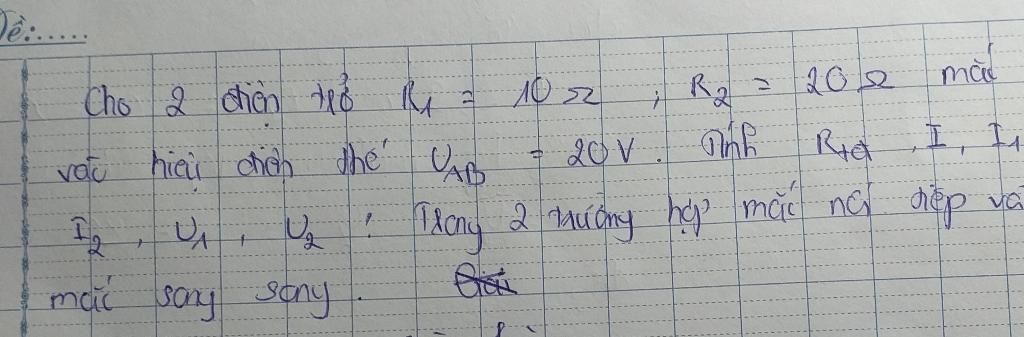 Đề:.....
Cho 2 điện trở R₁ = 10 Ω ; R₂ = 20 Ω mắc
vào hiệu điện thế U_AB = 20V. Tính R_tđ, I, I₁
I₂, U₁, U₂ ! Trong 2 trường hợp mắc nối tiếp và
mắc song song.